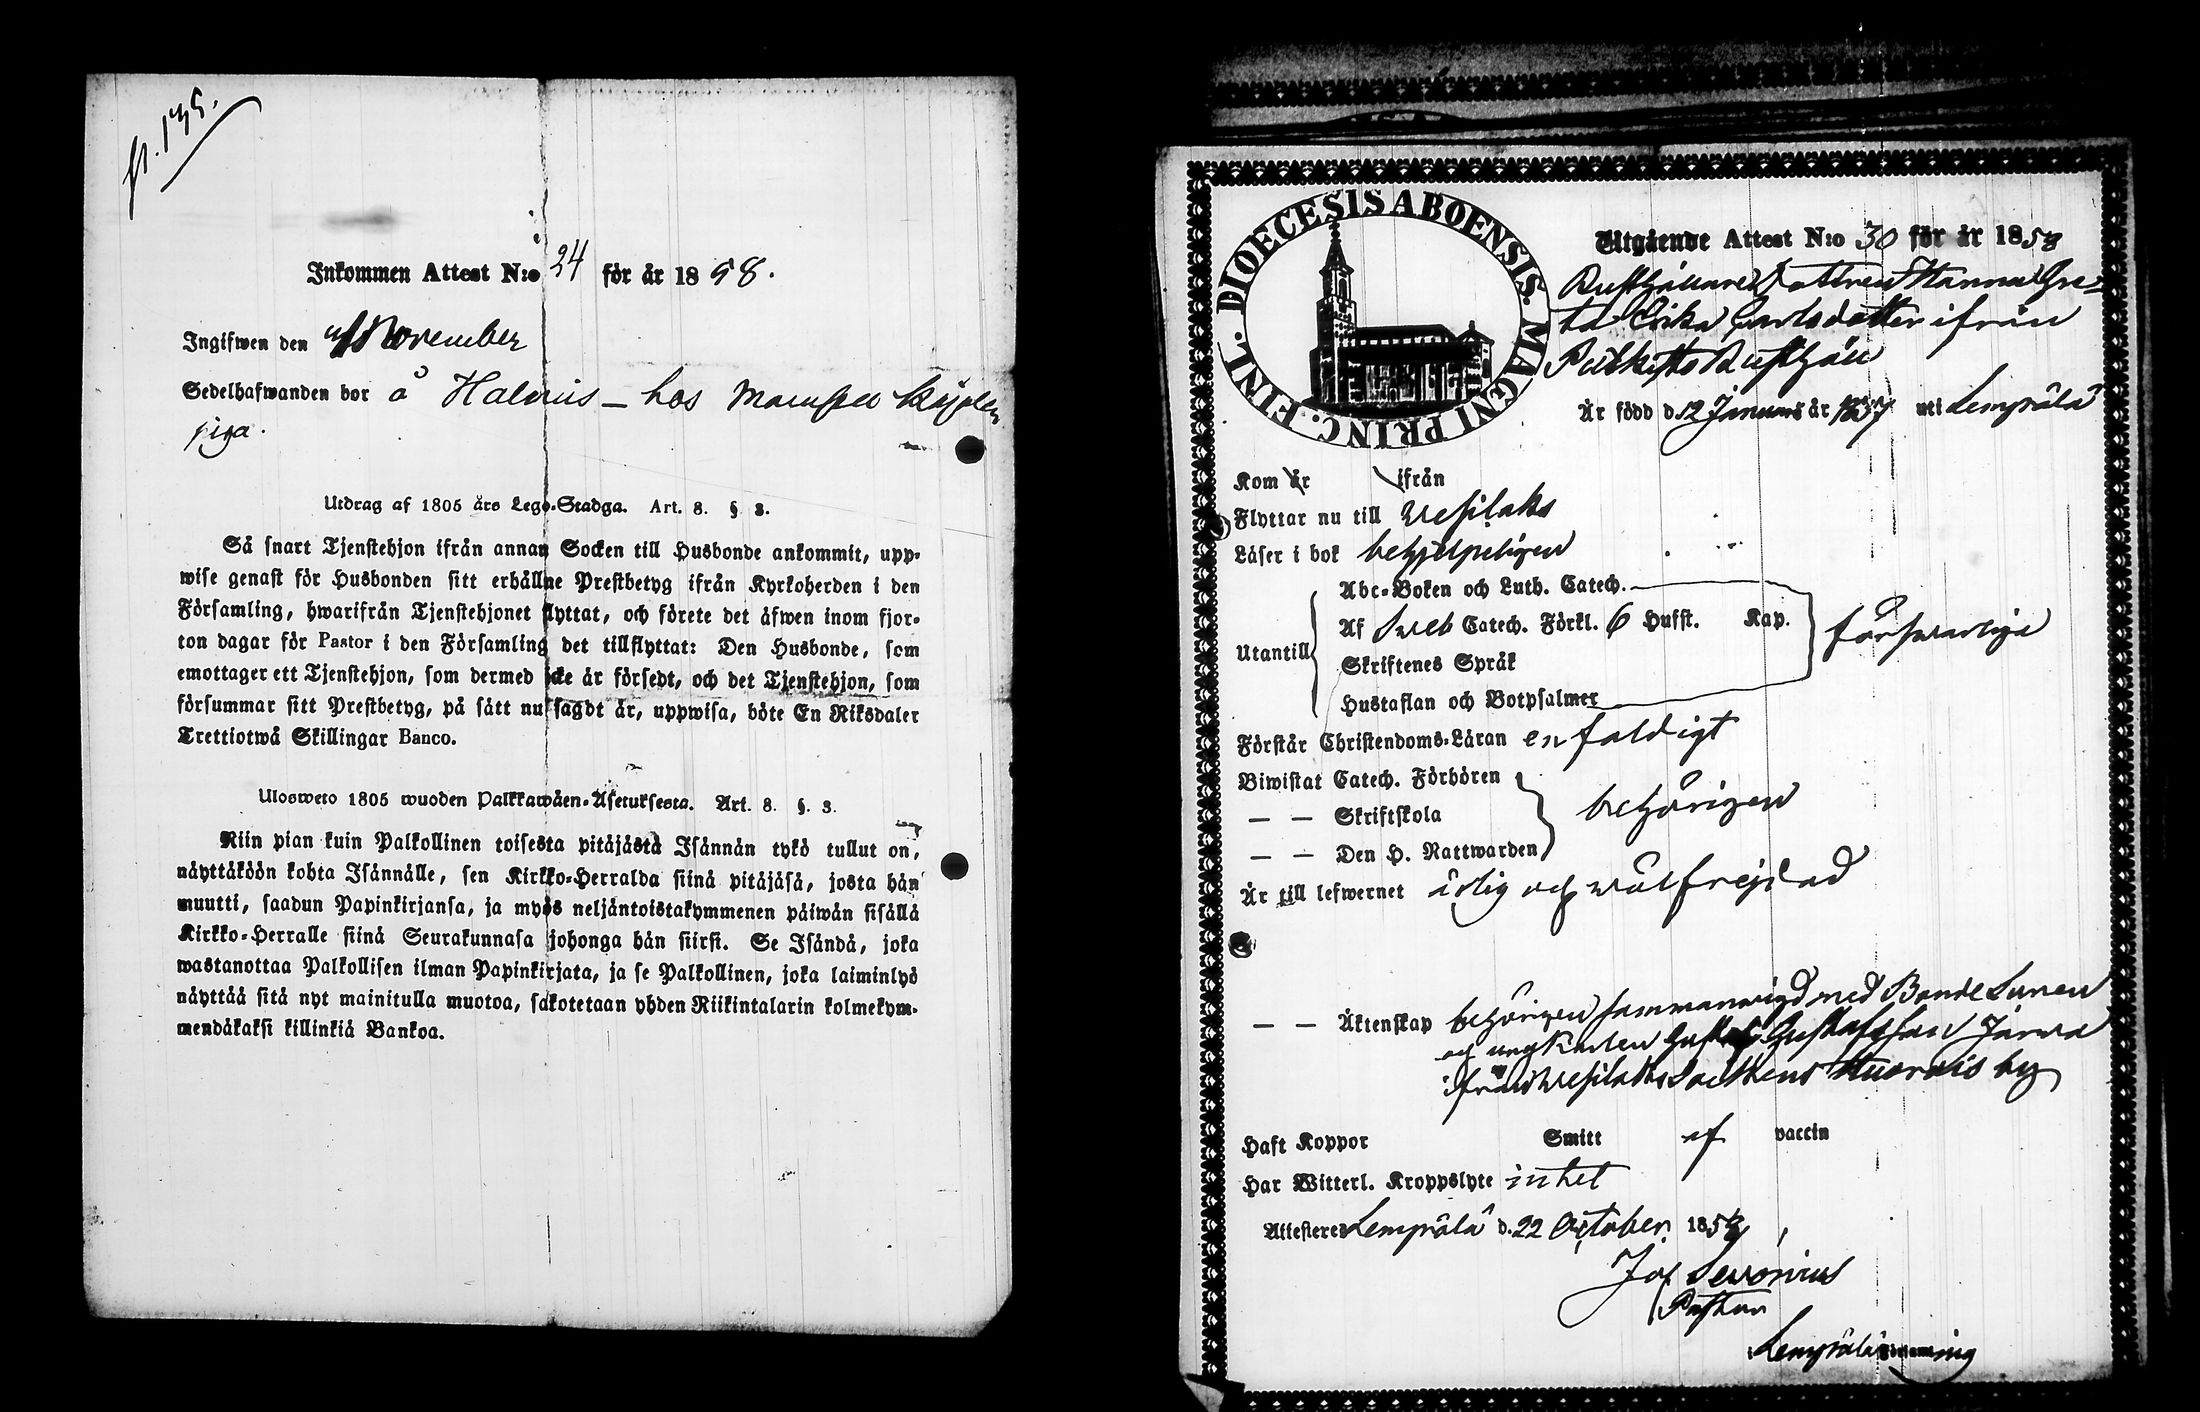 Inkommen Attest N:o 24 för år 1858.
Ingifwen den November
Sedelhafwanden bor å hos
piga.
Utdrag af 1805 års Lego-Stadga. Art. 8. § 3.
Så snart Tjenstehjon ifrån annan Socken till Husbonde ankommit, upp-
wise genast för Husbonden sitt erhållne Prestbetyg ifrån Kyrkoherden i den
Församling, hwarifrån Tjenstehjonet flyttat, och förete det äfwen inom fjor-
ton dagar för Pastor i den Församling det tillflyttat: Den Husbonde, som
emottager ett Tjenstehjon, som dermed icke är försedt, och det Tjenstehjon, som
försummar sitt Prestbetyg, på sätt nu sagdt är, uppwisa, böte En Riksdaler
Trettiotwå Skillingar Banco.
Ulosweto 1805 wuoden Palkkawäen-Asetuksesta. Art. 8. §. 3.
Niin pian kuin Palkollinen toisesta pitäjästä Isännän tykö tullut on,
näyttäköön kohta Isännälle, sen Kirkko-Herralda siinä pitäjäsä, josta hän
muutti, saadun Papinkirjansa, ja myös neljäntoistakymmenen päiwän sisällä
Kirkko-Herralle siinä Seurakunnasa johonga hän siirsi. Se Isändä, joka
wastanottaa Palkollisen ilman Papinkirjata, ja se Palkollinen, joka laiminlyö
näyttää sitä nyt mainitulla muotoa, sakotetaan yhden Riikintalarin kolmekym-
mendäkaksi killinkiä Bankoa.
DIOECESIS ABOENSIS. MAGNI PRINC. FINL.
Utgående Attest N:o 30 för år 1858
Rusthållare Dottren Hanna Gre-
ta Erika Carlsdotter ifrån
Rusthåll
Är född d. 12 Januarii år 1837 uti Lempäälä
Kom år ifrån
Flyttar nu till Vesilaks
Läser i bok behjelpeligen
Abc-Boken och Luth. Catech.
Utantill Af Sveb Catech. Förkl. 6 Hufst. Kap. försvarlige
Skriftenes Språk
Hustaflan och Botpsalmer
Förstår Christendoms-Läran enfaldigt
Biwistat Catech. Förhören
— — Skriftskola behörigen
— — Den H. Nattwarden
Är till lefwernet ärlig och wälfrejdad
— — Äktenskap behörigen sammanvigd med Bonde Sonen
och ungKarlen Gustaf Gustafsson Järva
ifrån Vesilaks Sockens by
Haft Koppor Smitt af vaccin
Har Witterl. Kroppslyte intet
Attesteres Lempäälä d. 22 October 1858
Jos Sevonius
Pastor
Lempäälä Församling